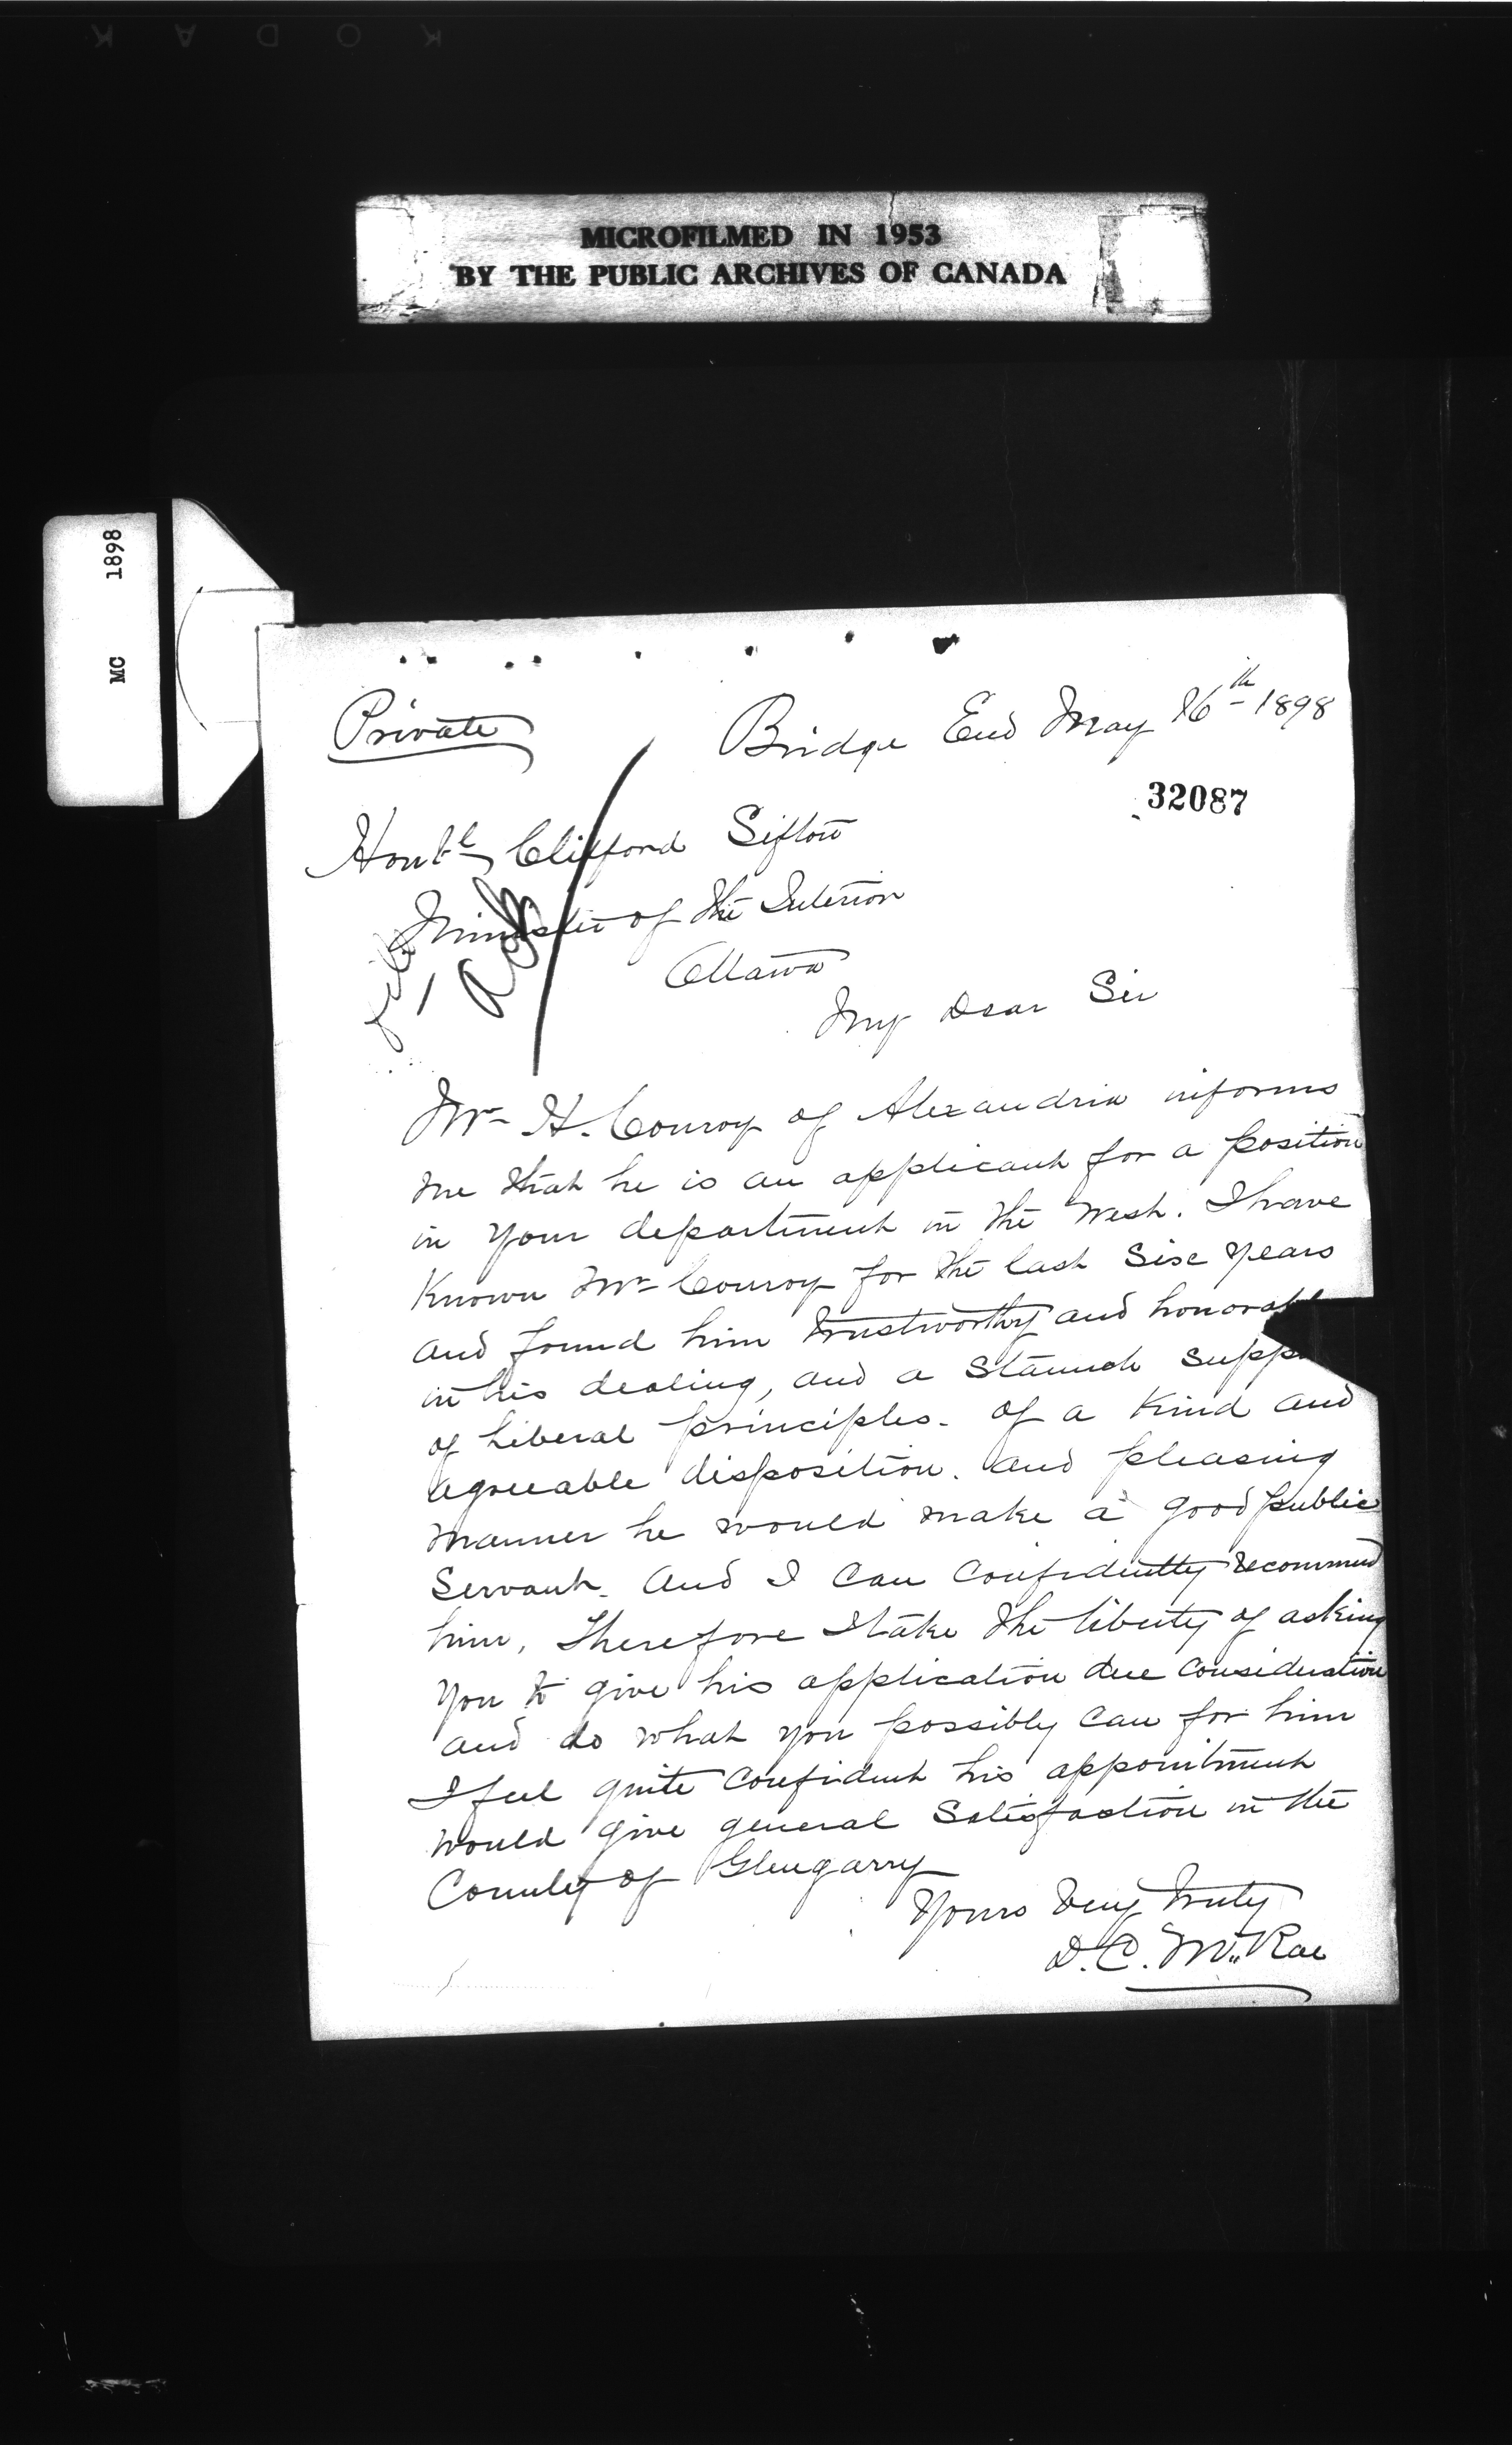 KODAK
MICROFILMED IN 1953
BY THE PUBLIC ARCHIVES OF CANADA
MC 1898
Private
Bridge End May 16th 1898
32087
Honble Clifford Sifton
Minister of the Interior
Ottawa
file
Ack
My Dear Sir
Mr H. Conroy of Alexandria informs
me that he is an applicant for a position
in your department in the West. I have
Known Mr Conroy for the last Six years
and found him trustworthy and honorabl
in his dealing, and a staunch supp
of Liberal principles. of a Kind and
agreeable disposition. and pleasing
manner he would make a good public
Servant. And I Can Confidently recommend
him, Therefore I take the liberty of asking
you to give his application due Consideration
and do what you possibly Can for him
I feel quite Confident his appointment
would give general Satisfaction in the
County of Glengarry
Yours Very Truly
D. C. McRae